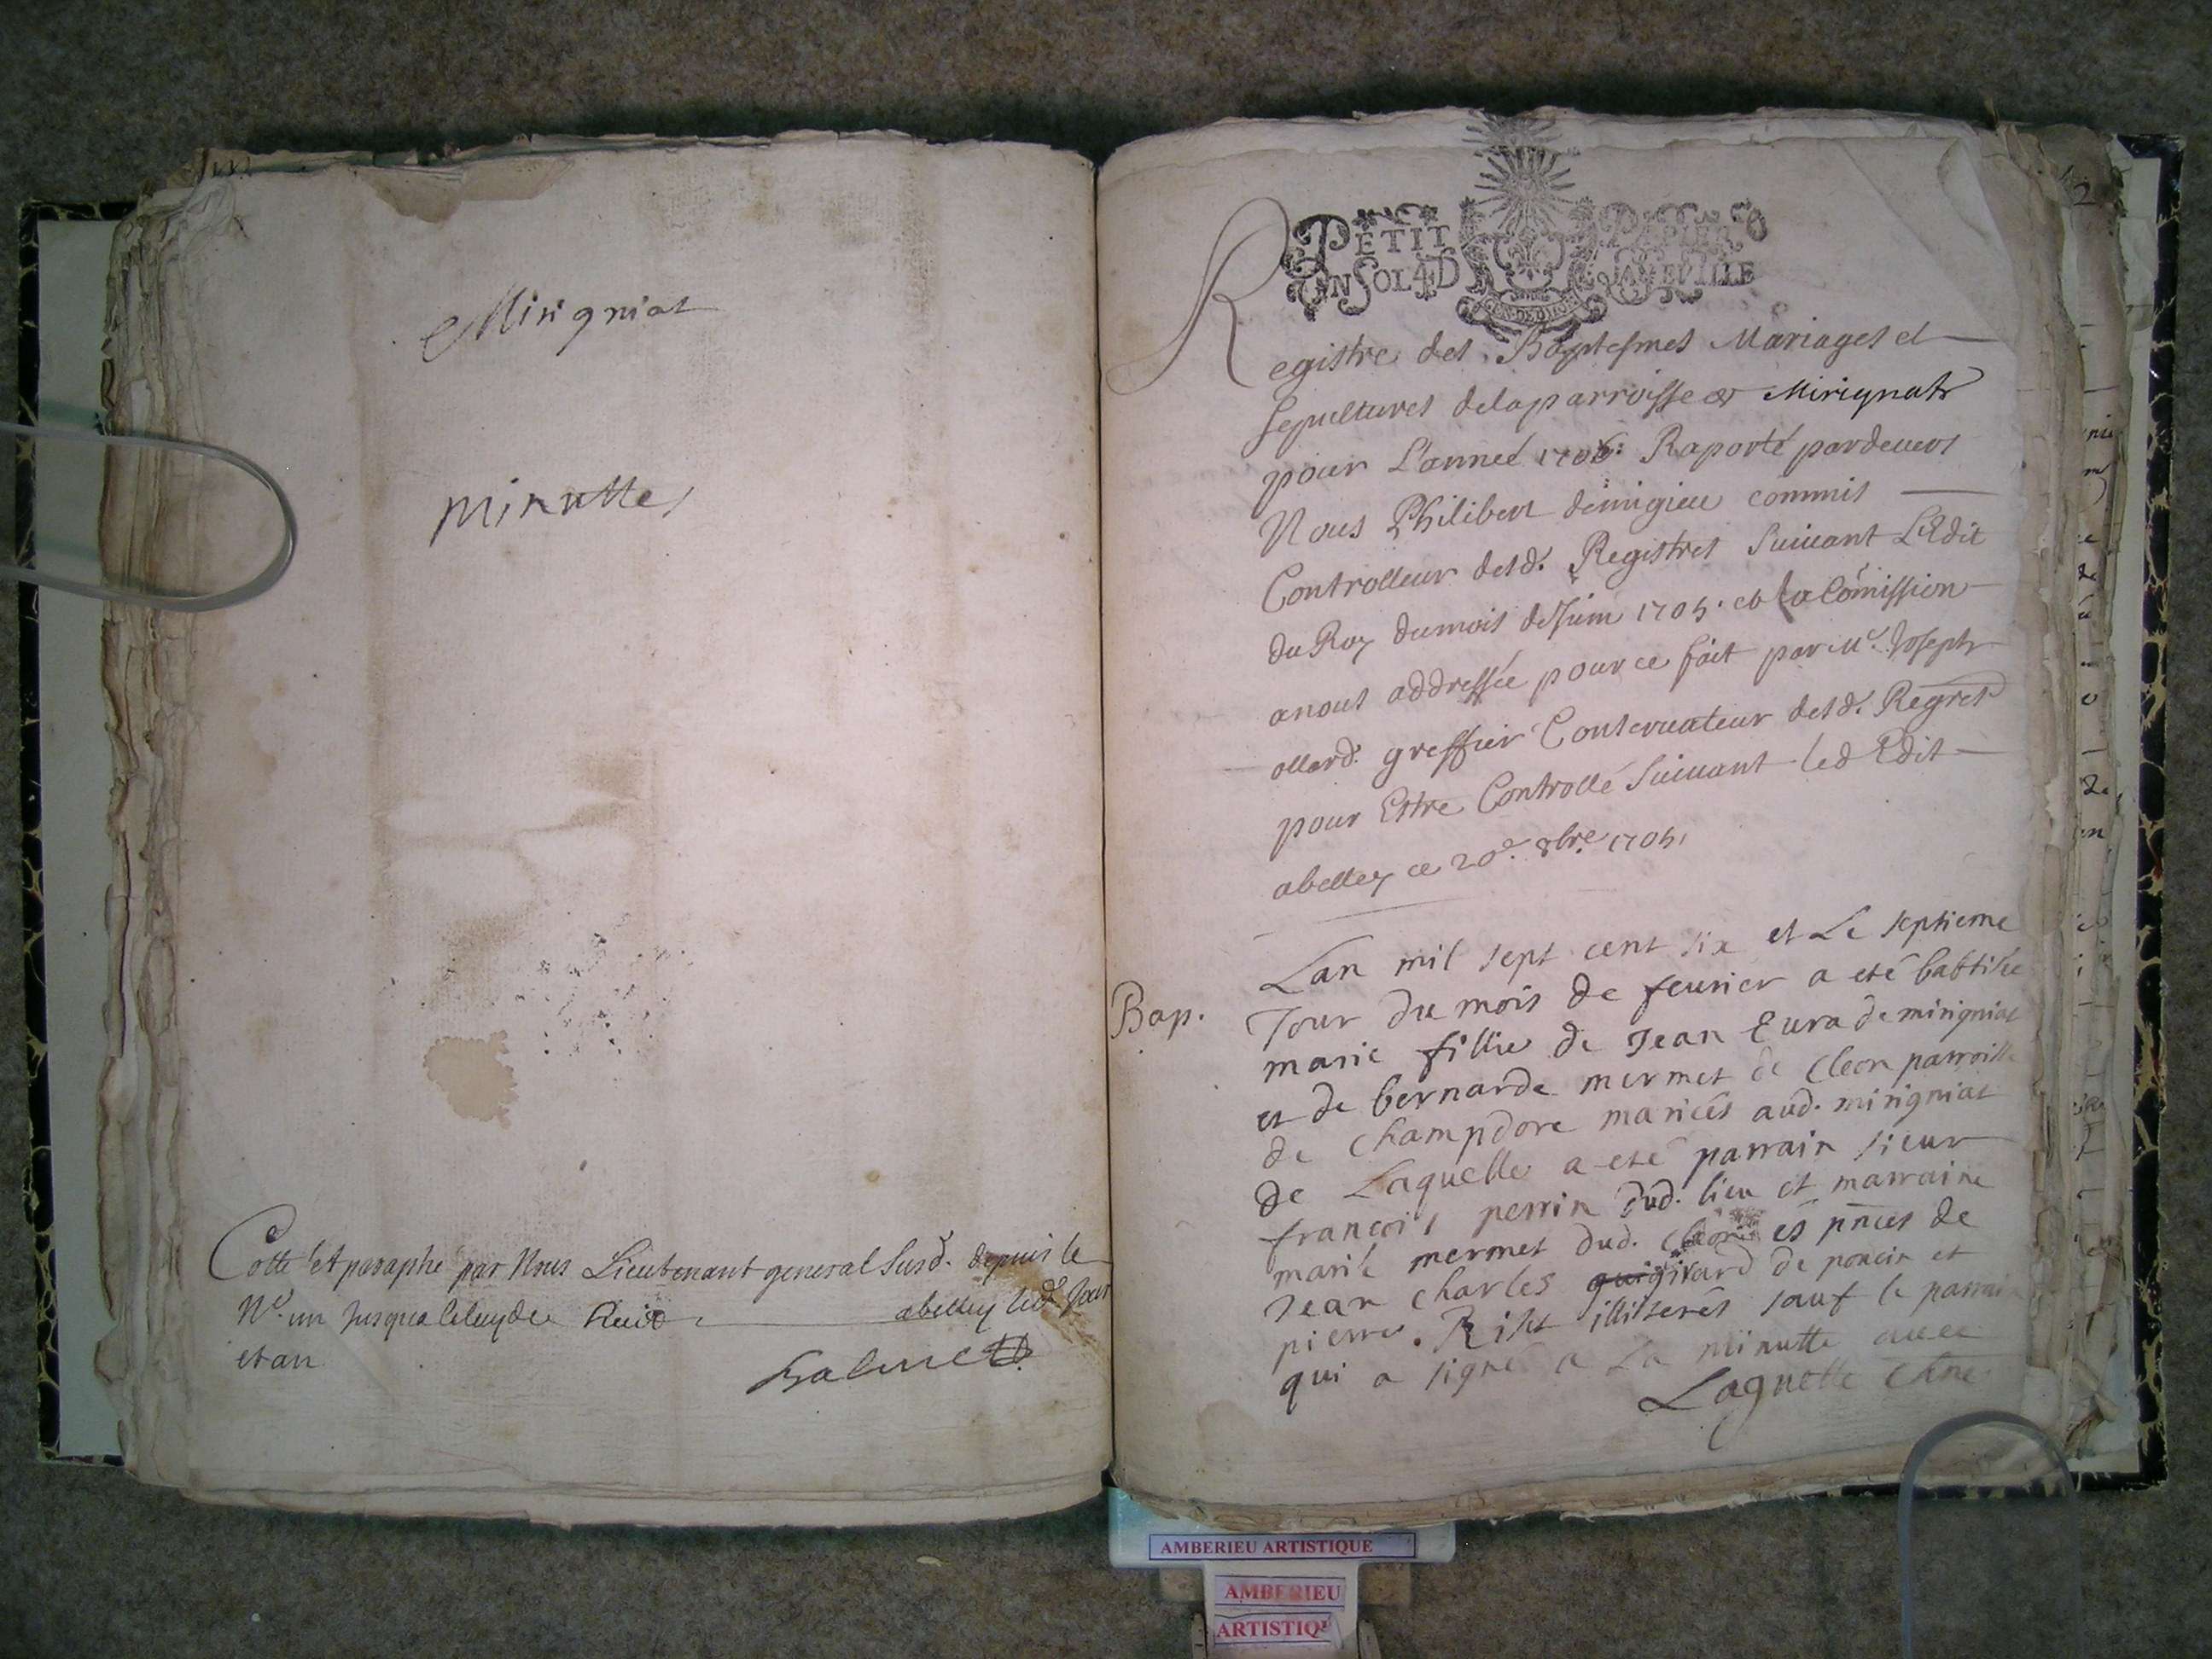 Mirigniat
minutte
Cotté et paraphé par Nous Lieutenant general susd. depuis le
N.º un jusqua celuy de huict abelley led. Jour
et an
Balme
PETIT PAPIER
UN SOL 4 D LA FEUILLE
Registre des Baptesmes Mariages et
sepultures delaparroisse de Mirignat
pour L'année 1706. Raporté pardevers
Nous Philibert demigieu commis
Controlleur desd. Registres suivant L'Edit
du Roy dumois de Juin 1705. et la Comission
anous addressée pour ce fait par Mᵉ. Joseph
ollard. greffier Conservateur desd. Regres
pour Estre Controllé suivant led Edit
abelley ce 20ᵉ. 8bre. 1705.
Bap.
Lan mil sept cent six et Le septieme
Jour du mois de feurier a eté babtisée
marie fillie de Jean Eura de mirigniat
et de bernarde mermet de Cleon parroisse
de Champdore mariés aud. mirigniat
de Laquelle a eté parrain sieur
francois perrin dud. lieu et marraine
marie mermet dud. Cleon és pnces de
Jean Charles girard de poncin et
pierre illiterés sauf le parrain
qui a signé a La minutte avec
Laquelle
AMBERIEU ARTISTIQUE
AMBERIEU
ARTISTIQU